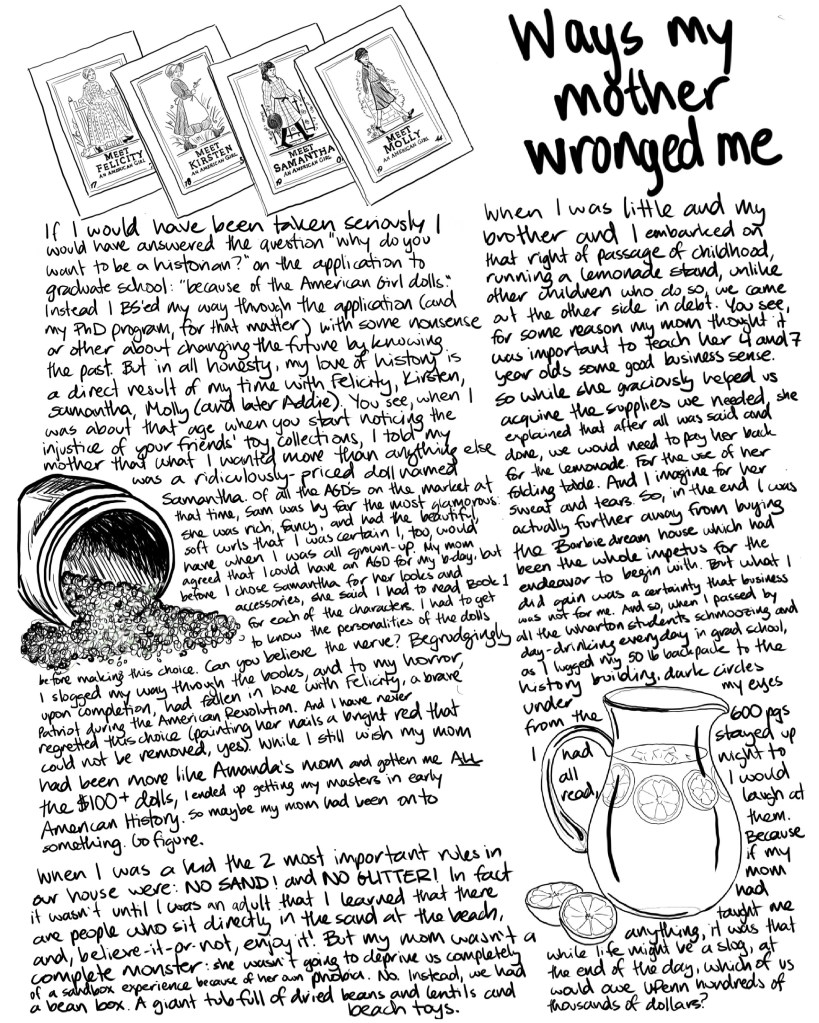 Ways my
mother
wronged me
MEET
FELICITY
AN AMERICAN GIRL
17
MEET
KIRSTEN
AN AMERICAN GIRL
18
MEET
SAMANTHA
AN AMERICAN GIRL
19
MEET
MOLLY
AN AMERICAN GIRL
19
44
If I would have been taken seriously I
would have answered the question "why do you
want to be a historian?" on the application to
graduate school: "because of the American Girl dolls."
Instead I BS'ed my way through the application (and
my PhD program, for that matter) with some nonsense
or other about changing the future by knowing
the past. But in all honesty, my love of history is
a direct result of my time with Felicity, Kirsten,
Samantha, Molly (and later Addie). You see, when I
was about that age when you start noticing the
injustice of your friends' toy collections, I told my
mother that what I wanted more than anything else
was a ridiculously-priced doll named
Samantha. Of all the AGD's on the market at
that time, Sam was by far the most glamorous:
she was rich, fancy, and had the beautiful,
soft curls that I was certain I, too, would
have when I was all grown-up. My mom
agreed that I could have an AGD for my b-day, but
before I chose Samantha for her looks and
accessories, she said I had to read Book 1
for each of the characters. I had to get
to know the personalities of the dolls
before making this choice. Can you believe the nerve? Begrudgingly
I slogged my way through the books, and to my horror,
upon completion, had fallen in love with Felicity, a brave
Patriot during the American Revolution. And I have never
regretted this choice (painting her nails a bright red that
could not be removed, yes). While I still wish my mom
had been more like Amanda's mom and gotten me ALL
the $100+ dolls, I ended up getting my masters in early
American History. So maybe my mom had been on to
something. Go figure.
When I was a kid the 2 most important rules in
our house were: NO SAND! and NO GLITTER! In fact
it wasn't until I was an adult that I learned that there
are people who sit directly in the sand at the beach,
and, believe-it-or-not, enjoy it! But my mom wasn't a
complete monster: she wasn't going to deprive us completely
of a sandbox experience because of her own phobia. No. Instead, we had
a bean box. A giant tub full of dried beans and lentils and
beach toys.
When I was little and my
brother and I embarked on
that right of passage of childhood,
running a lemonade stand, unlike
other children who do so, we came
out the other side in debt. You see,
for some reason my mom thought it
was important to teach her 4 and 7
year olds some good business sense.
So while she graciously helped us
acquire the supplies we needed, she
explained that after all was said and
done, we would need to pay her back
for the lemonade. For the use of her
folding table. And I imagine for her
sweat and tears. So, in the end I was
actually further away from buying
the Barbie dream house which had
been the whole impetus for the
endeavor to begin with. But what I
did gain was a certainty that business
was not for me. And so, when I passed by
all the Wharton students schmoozing and
day-drinking everyday in grad school,
as I lugged my 50 lb backpack to the
history building, dark circles
under my eyes
from the 600 pgs
I had stayed up
all night to
read, I would
laugh at
them.
Because
if my
mom
had
taught me
anything, it was that
while life might be a slog, at
the end of the day, which of us
would owe UPenn hundreds of
thousands of dollars?